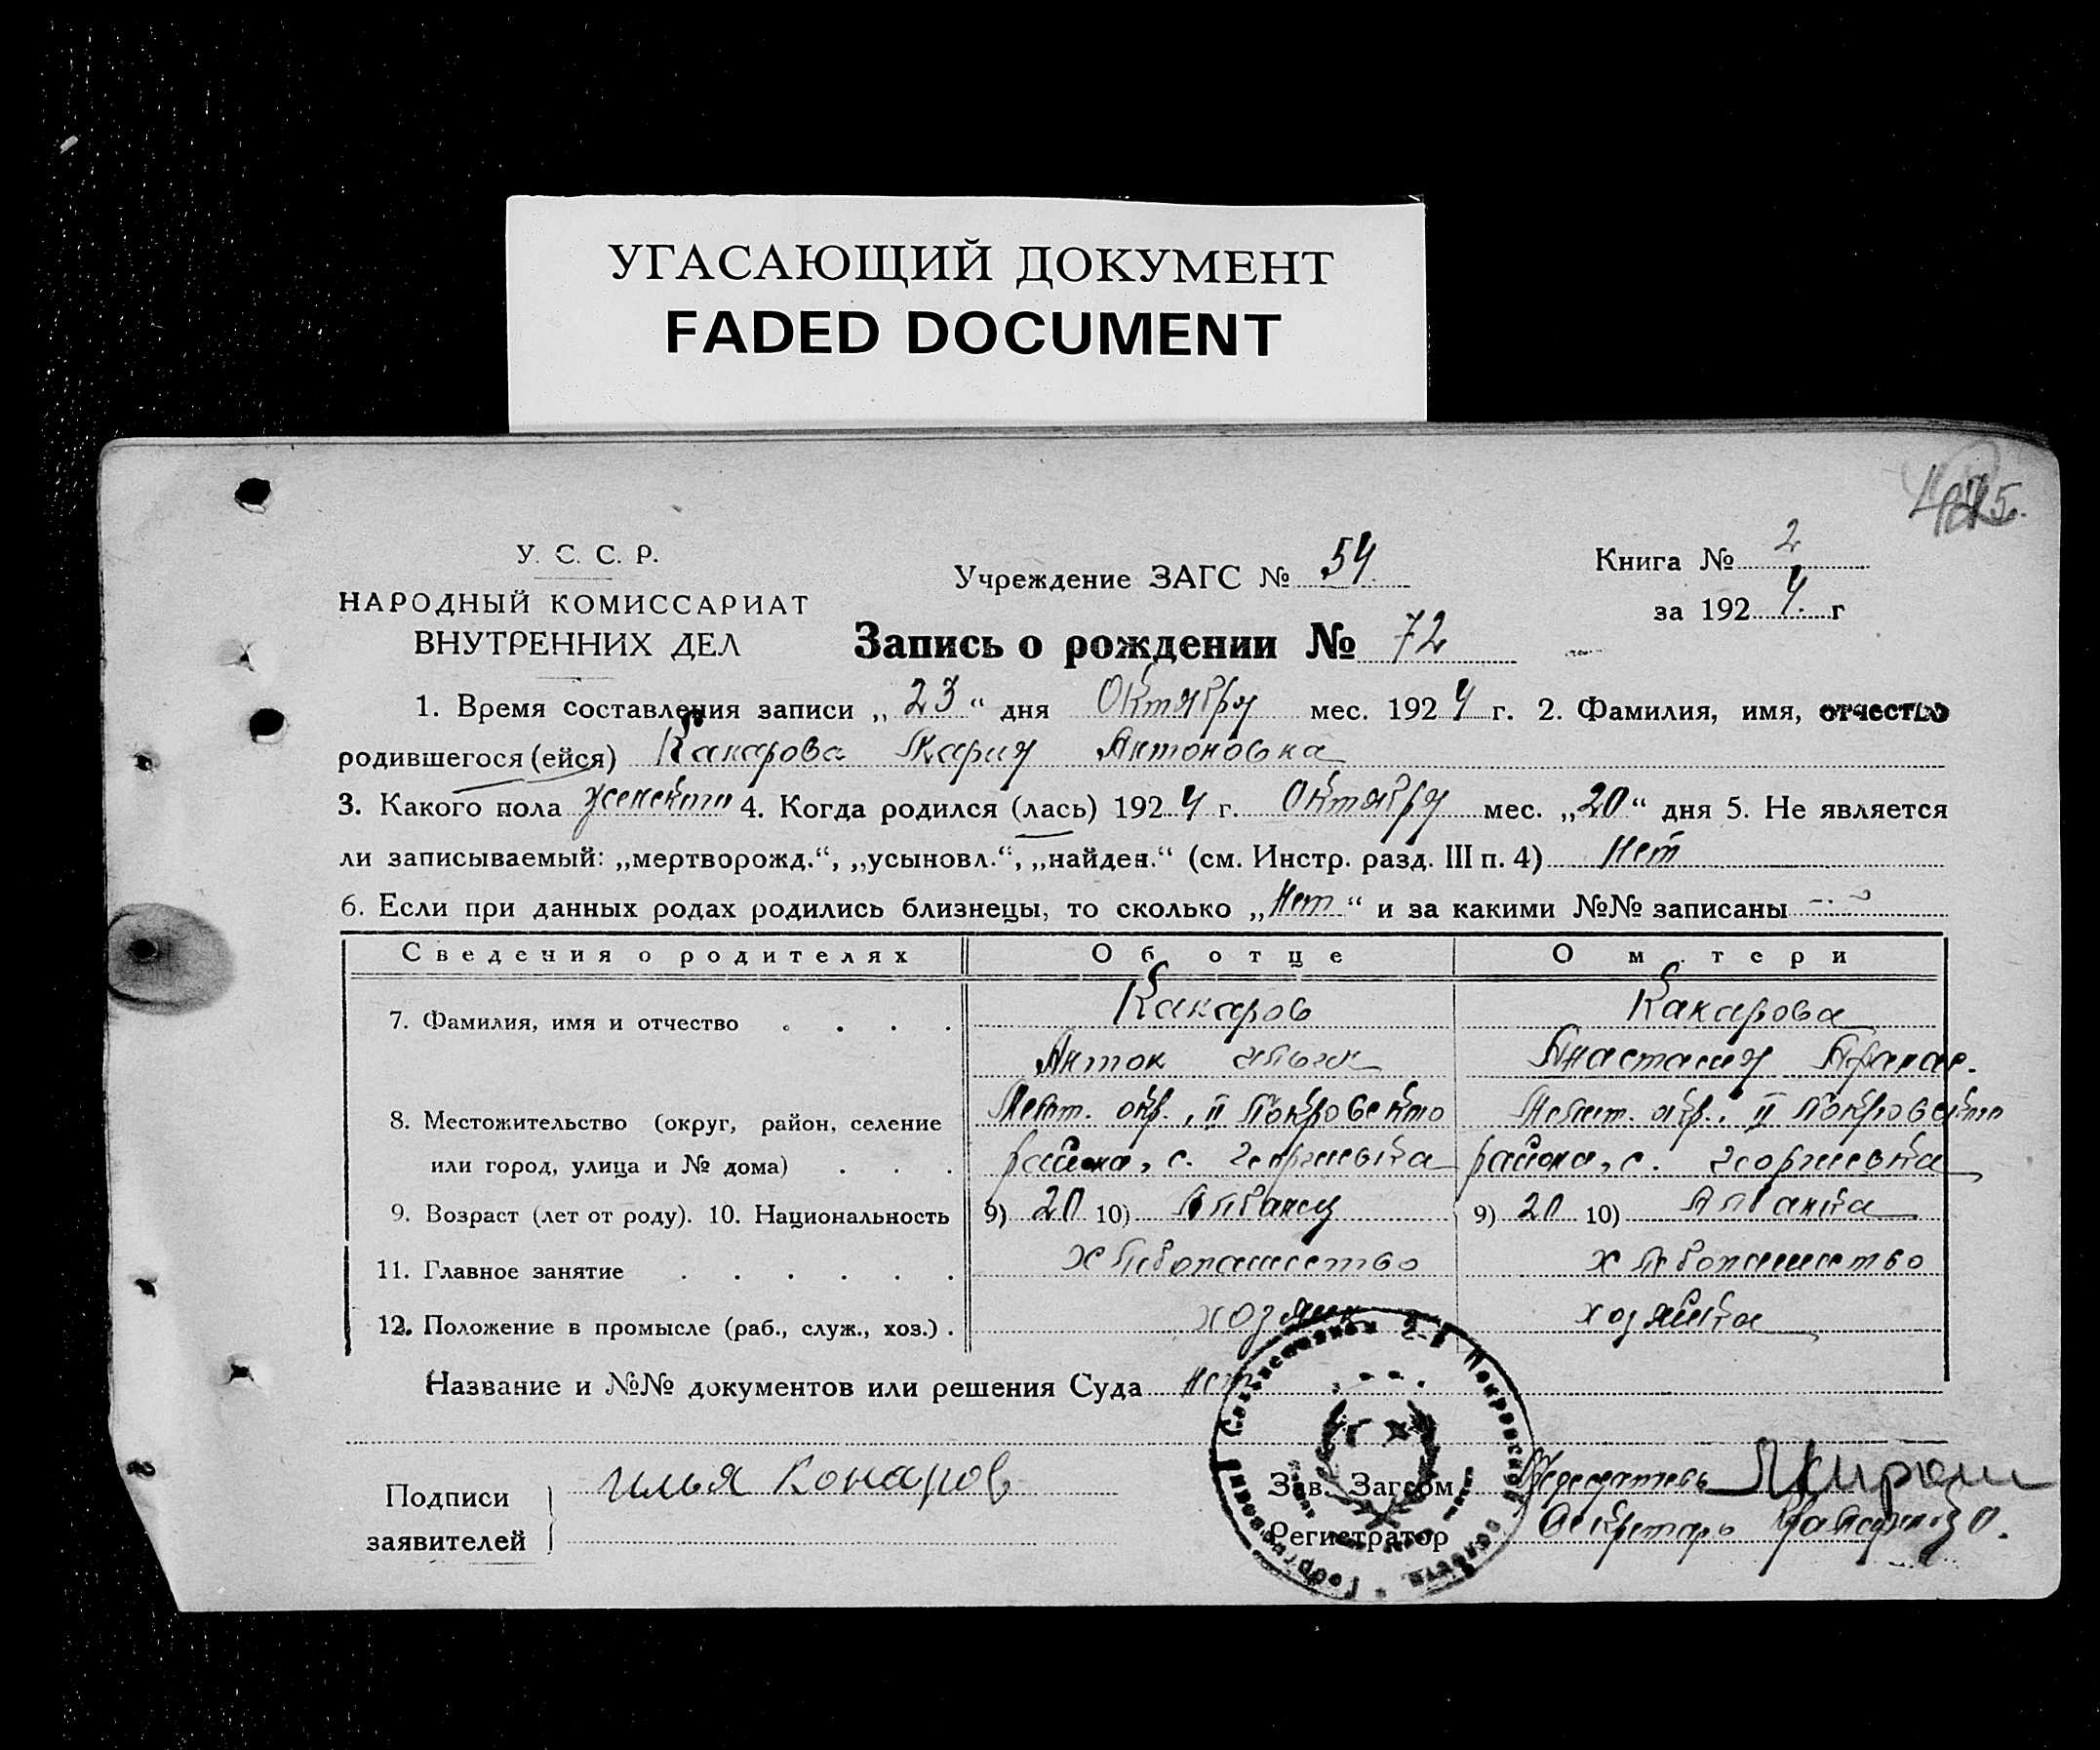 УГАСАЮЩИЙ ДОКУМЕНТ
FADED DOCUMENT
У. С. С. Р.
НАРОДНЫЙ КОМИССАРИАТ
ВНУТРЕННИХ ДЕЛ
Учреждение ЗАГС № 54
Книга № 2
за 1924 г
Запись о рождении № 72
1. Время составления записи „23“ дня Октября мес. 1924 г. 2. Фамилия, имя, отчество
родившегося (ейся) Какарова Мария Антоновна
3. Какого пола женского 4. Когда родился (лась) 1924 г. Октября мес. „20“ дня 5. Не является
ли записываемый: „мертворожд.“, „усыновл.“, „найден.“ (см. Инстр. разд. III п. 4) Нет
6. Если при данных родах родились близнецы, то сколько „Нет“ и за какими №№ записаны
Сведения о родителях Об отце О м тери
7. Фамилия, имя и отчество Какаров Какарова
Антон Ильич Анастасия Афанас.
8. Местожительство (округ, район, селение Мелит. окр., II Покровского Мелит. окр., II Покровского
или город, улица и № дома) района, с. Георгиевка района, с. Георгиевка
9. Возраст (лет от роду). 10. Национальность 9) 20 10) Албанец 9) 20 10) Албанка
11. Главное занятие Хлебопашество Хлебопашество
12. Положение в промысле (раб., служ., хоз.) хозяин хозяйка
Название и №№ документов или решения Суда нет
Подписи заявителей Илья Конаров
Зав. Загсом Председатель
Регистратор Секретарь